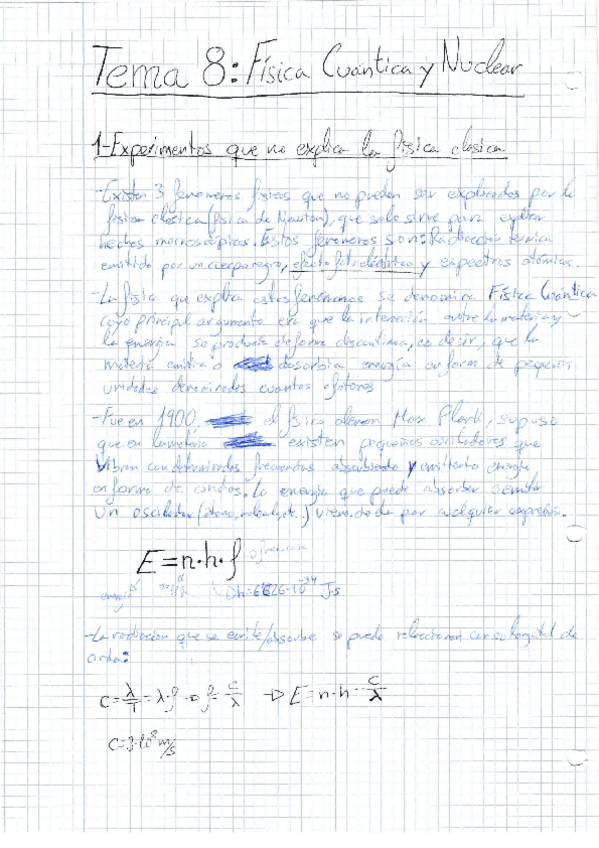 Tema 8: Física Cuántica y Nuclear
1-Experimentos que no explica la física clásica
-Existen 3 fenomenos físicos que no pueden ser explicados por la
física clásica (física de Newton), que solo sirve para explicar
hechos macroscópicos. Estos fenomenos son: Radiacción térmica
emitida por un cuerpo negro, efecto fotoeléctrico y espectros atómicos.
-La física que explica estos fenómenos se denomina Física Cuántica
cuyo principal argumento era que la interacción entre la materia y
la energía se producía de forma discontinua, es decir, que la
materia emitía o absorbía energía en forma de pequeñas
unidades denominadas cuantos o fotones
-Fue en 1900, el físico aleman Max Plank, supuso
que en la materia existen pequeños osciladores que
vibran con determinadas frecuencias absorbiendo y emitiendo energía
en forma de cuantos. La energía que puede absorber o emitir
un oscilador (átomo, molécula, etc..) viene dada por cualquier expresión.
E=n·h·f o frecuencia
energía h=6'626·10⁻³⁴ J·s
-La radiacción que se emite/absorbe se puede relaccionar con su longitud de
onda:
c=λ/T=λ·f → f=c/λ → E=n·h·c/λ
c=3·10⁸ m/s